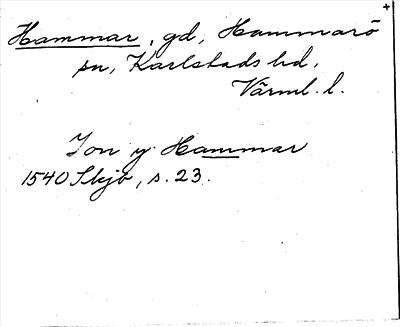 Hammar, gd, Hammarö
sn, Karlstads hd,
Värml. l.
Jon y Hammar
1540 Skjb, s. 23.